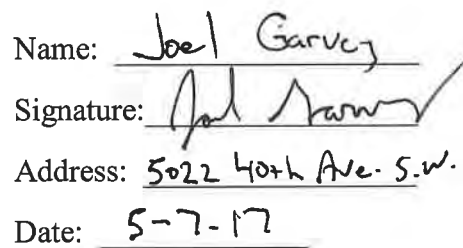 Name: Joel Garvey
Signature: Joel Garvey
Address: 5022 40th Ave. S.W.
Date: 5-7-17